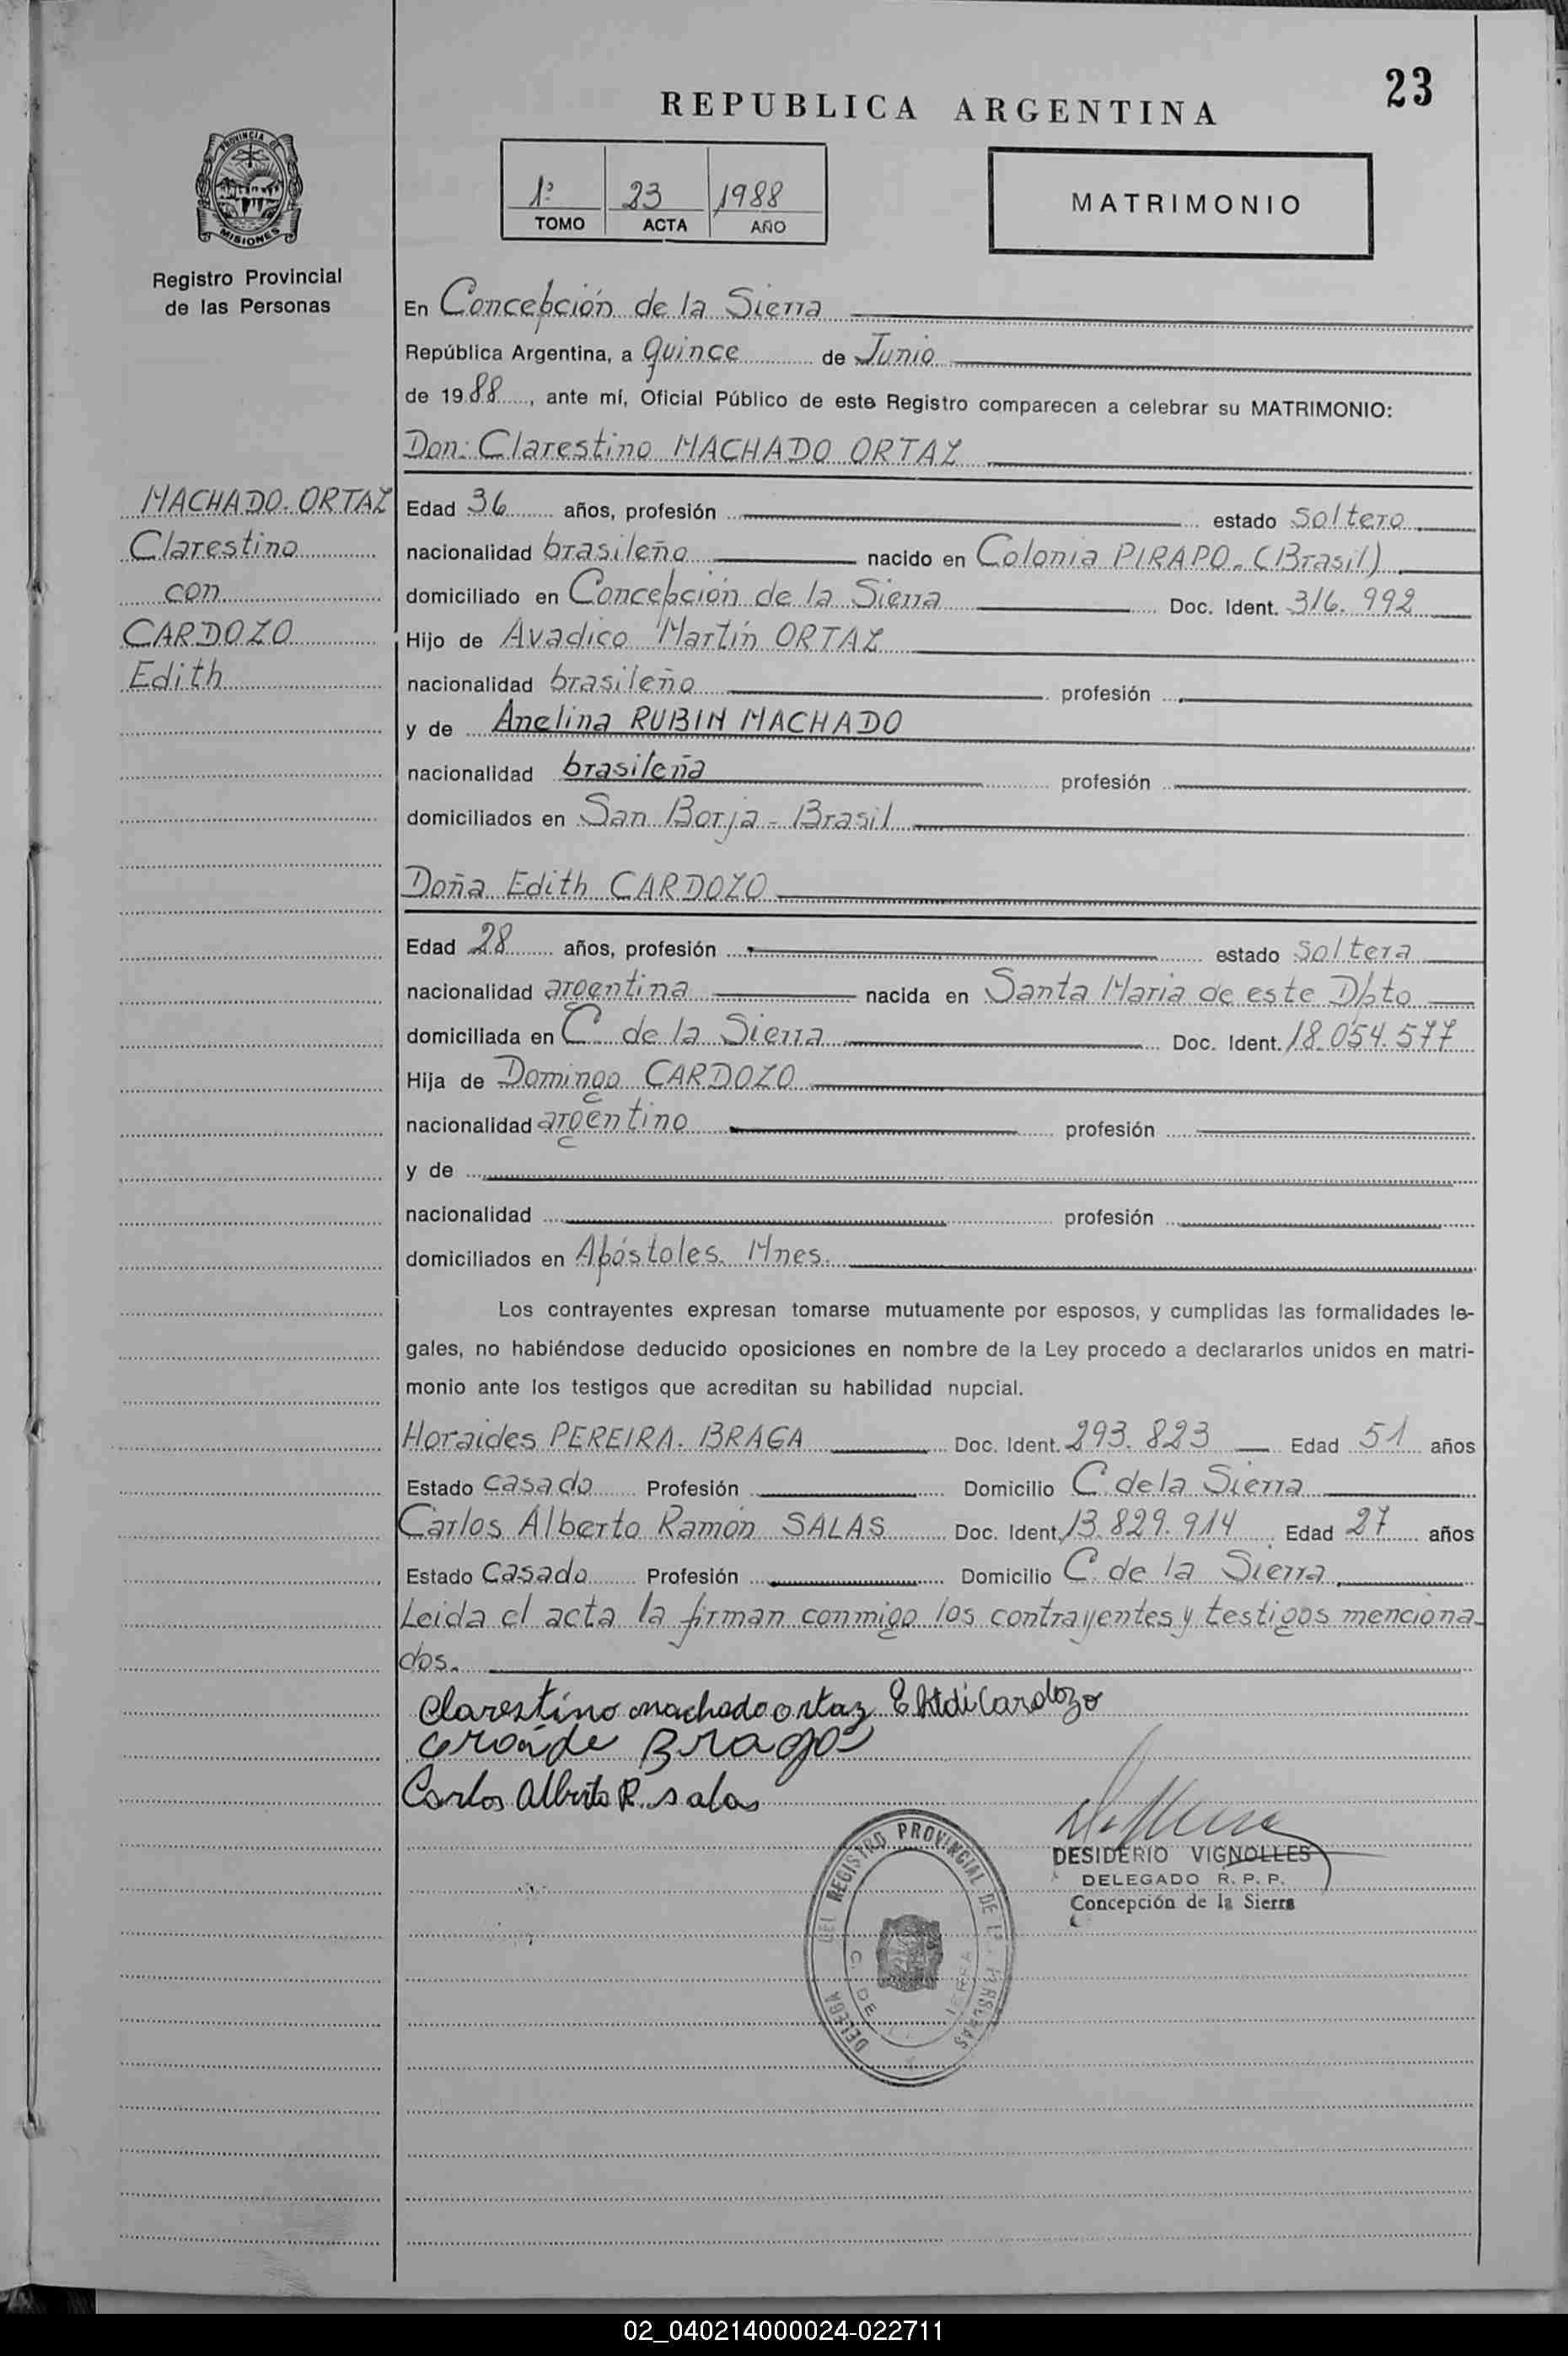 23
REPUBLICA ARGENTINA
PROVINCIA DE
MISIONES
Registro Provincial
de las Personas
1º 23 1988
TOMO ACTA AÑO
MATRIMONIO
En Concepción de la Sierra
República Argentina, a quince de Junio
de 1988, ante mí, Oficial Público de este Registro comparecen a celebrar su MATRIMONIO:
Don: Clarestino MACHADO ORTAZ
MACHADO. ORTAZ
Clarestino
con
CARDOZO
Edith
Edad 36 años, profesión estado soltero
nacionalidad brasileño nacido en Colonia PIRAPO. (Brasil)
domiciliado en Concepción de la Sierra Doc. Ident. 316.992
Hijo de Avadico Martín ORTAZ
nacionalidad brasileño profesión
y de Anelina RUBIN MACHADO
nacionalidad brasileña profesión
domiciliados en San Borja - Brasil
Doña Edith CARDOZO
Edad 28 años, profesión estado soltera
nacionalidad argentina nacida en Santa Maria de este Dpto
domiciliada en C. de la Sierra Doc. Ident. 18.054.577
Hija de Domingo CARDOZO
nacionalidad argentino profesión
y de
nacionalidad profesión
domiciliados en Apóstoles. Mnes.
Los contrayentes expresan tomarse mutuamente por esposos, y cumplidas las formalidades le-
gales, no habiéndose deducido oposiciones en nombre de la Ley procedo a declararlos unidos en matri-
monio ante los testigos que acreditan su habilidad nupcial.
Horaides PEREIRA. BRAGA Doc. Ident. 293.823 Edad 51 años
Estado casado Profesión Domicilio C. de la Sierra
Carlos Alberto Ramón SALAS Doc. Ident. 13.829.914 Edad 27 años
Estado Casado Profesión Domicilio C. de la Sierra
Leida el acta la firman conmigo los contrayentes y testigos menciona-
dos.
Clarestino machado ortaz Cardozo
Braga
Carlos Alberto R. salas
DESIDERIO VIGNOLLES
DELEGADO R. P. P.
Concepción de la Sierra
DEL REGISTRO PROVINCIAL DE LAS PERSONAS
02_040214000024-022711